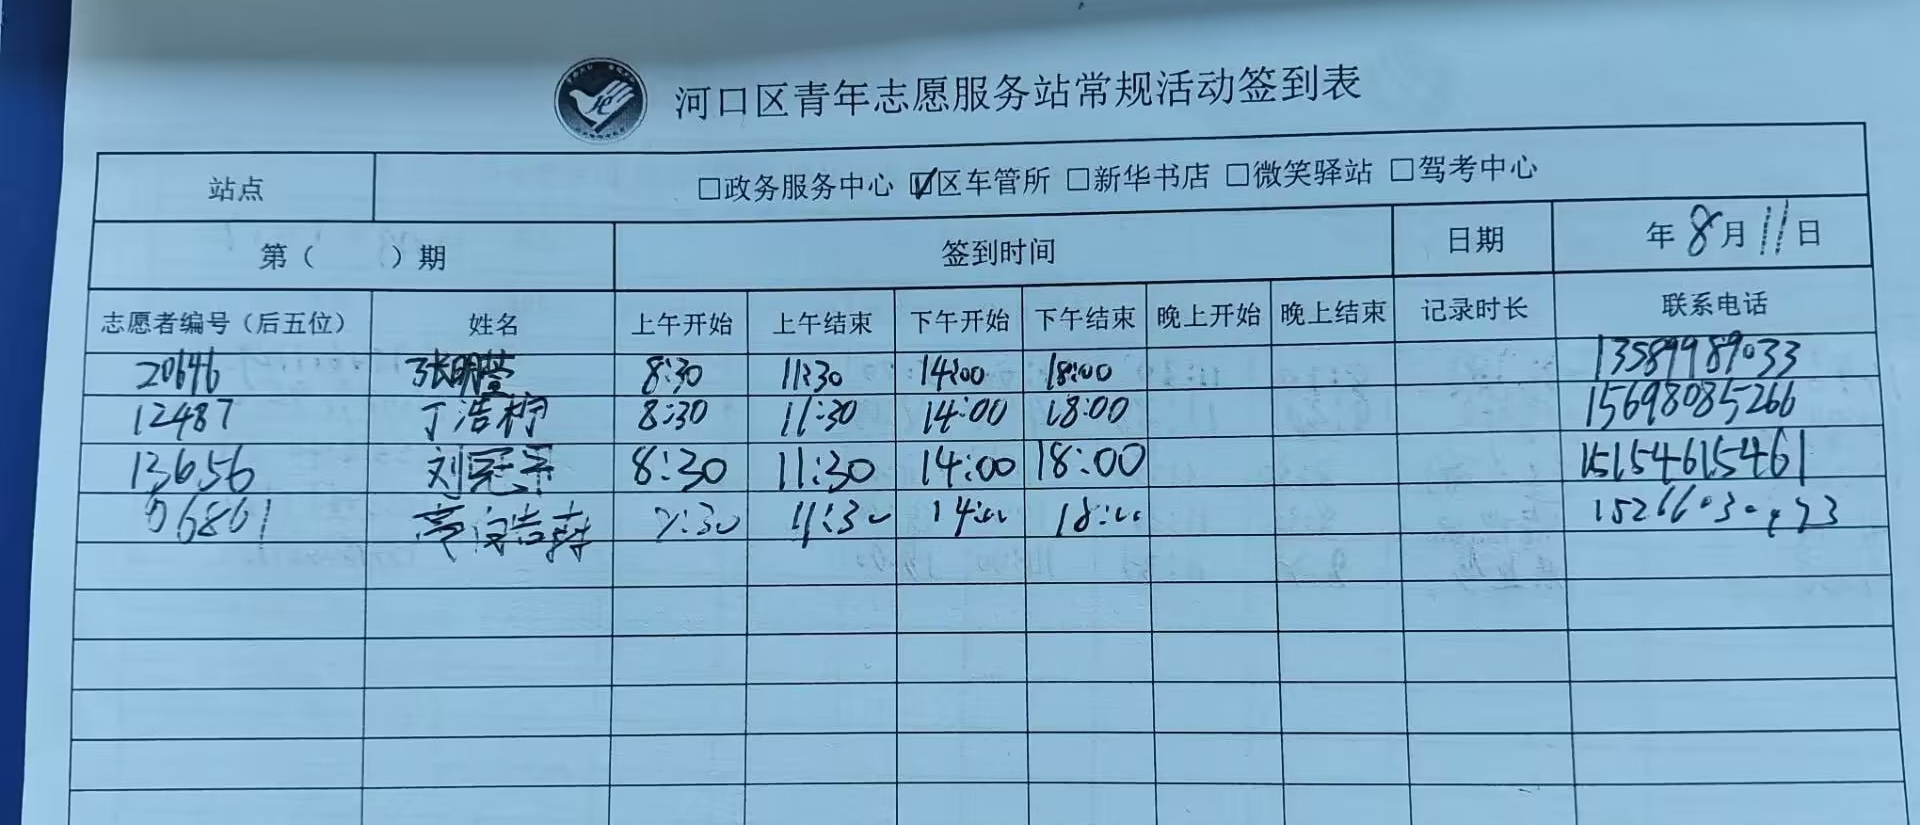 河口区青年志愿服务站常规活动签到表
站点 □政务服务中心 ☑区车管所 □新华书店 □微笑驿站 □驾考中心
第（ ）期 签到时间 日期 年8月11日
志愿者编号（后五位） 姓名 上午开始 上午结束 下午开始 下午结束 晚上开始 晚上结束 记录时长 联系电话
20646 张明莹 8:30 11:30 14:00 18:00 13589989033
12487 丁浩 8:30 11:30 14:00 18:00 15698085266
13656 刘冠 8:30 11:30 14:00 18:00 15154615461
06861 11:30 14:00 18:00